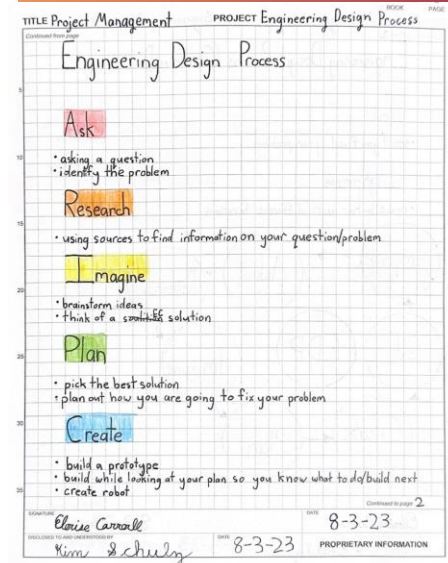 BOOK PAGE
TITLE Project Management PROJECT Engineering Design Process
Continued from page
Engineering Design Process
5
Ask
10
• asking a question
• identify the problem
Research
15
• using sources to find information on your question/problem
Imagine
20
• brainstorm ideas
• think of a solution
Plan
25
• pick the best solution
• plan out how you are going to fix your problem
30
Create
• build a prototype
• build while looking at your plan so you know what to do/build next
35
• create robot
Continued to page 2
SIGNATURE DATE
Eloise Carroll 8-3-23
DISCLOSED TO AND UNDERSTOOD BY DATE PROPRIETARY INFORMATION
Kim Schulz 8-3-23